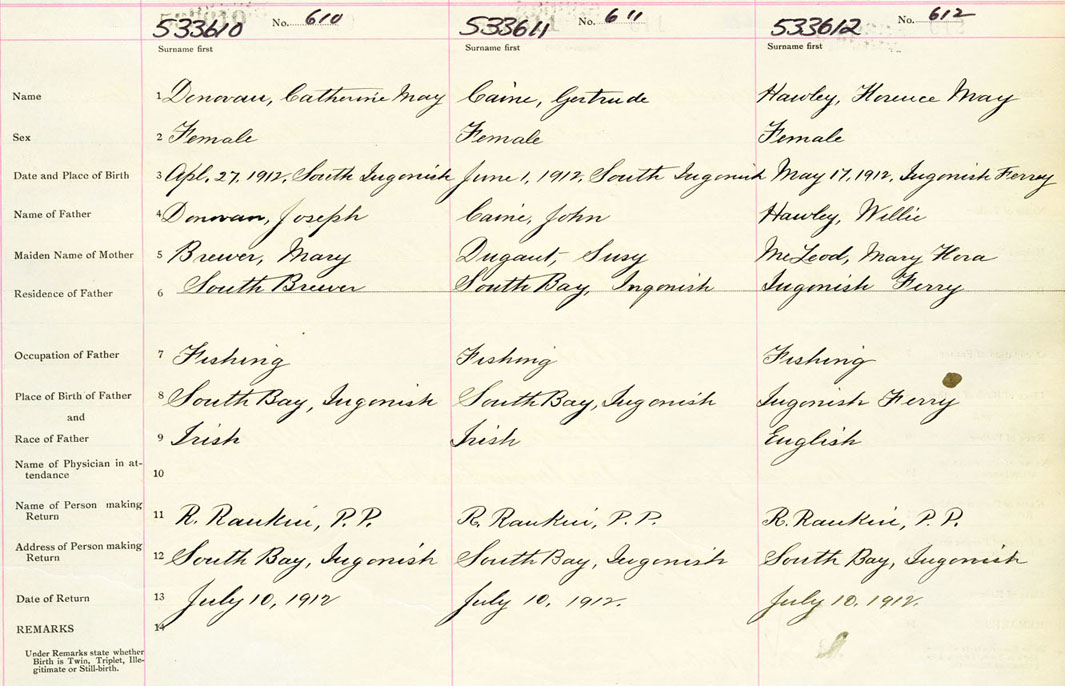 533610 No. 610 533611 No. 611 533612 No. 612
Surname first Surname first Surname first
Name 1 Donovan, Catherine May Caine, Gertrude Hawley, Florence May
Sex 2 Female Female Female
Date and Place of Birth 3 Apl. 27, 1912, South Ingonish June 1, 1912, South Ingonish May 17, 1912, Ingonish Ferry
Name of Father 4 Donovan, Joseph Caine, John Hawley, Willie
Maiden Name of Mother 5 Brewer, Mary Dugaut, Susy McLeod, Mary Flora
Residence of Father 6 South Brewer South Bay, Ingonish Ingonish Ferry
Occupation of Father 7 Fishing Fishing Fishing
Place of Birth of Father 8 South Bay, Ingonish South Bay, Ingonish Ingonish Ferry
and
Race of Father 9 Irish Irish English
Name of Physician in at-
tendance 10
Name of Person making
Return 11 R. Rankin, P.P. R. Rankin, P.P. R. Rankin, P.P.
Address of Person making
Return 12 South Bay, Ingonish South Bay, Ingonish South Bay, Ingonish
Date of Return 13 July 10, 1912 July 10, 1912. July 10, 1912.
REMARKS 14
Under Remarks state whether
Birth is Twin, Triplet, Ille-
gitimate or Still-birth.